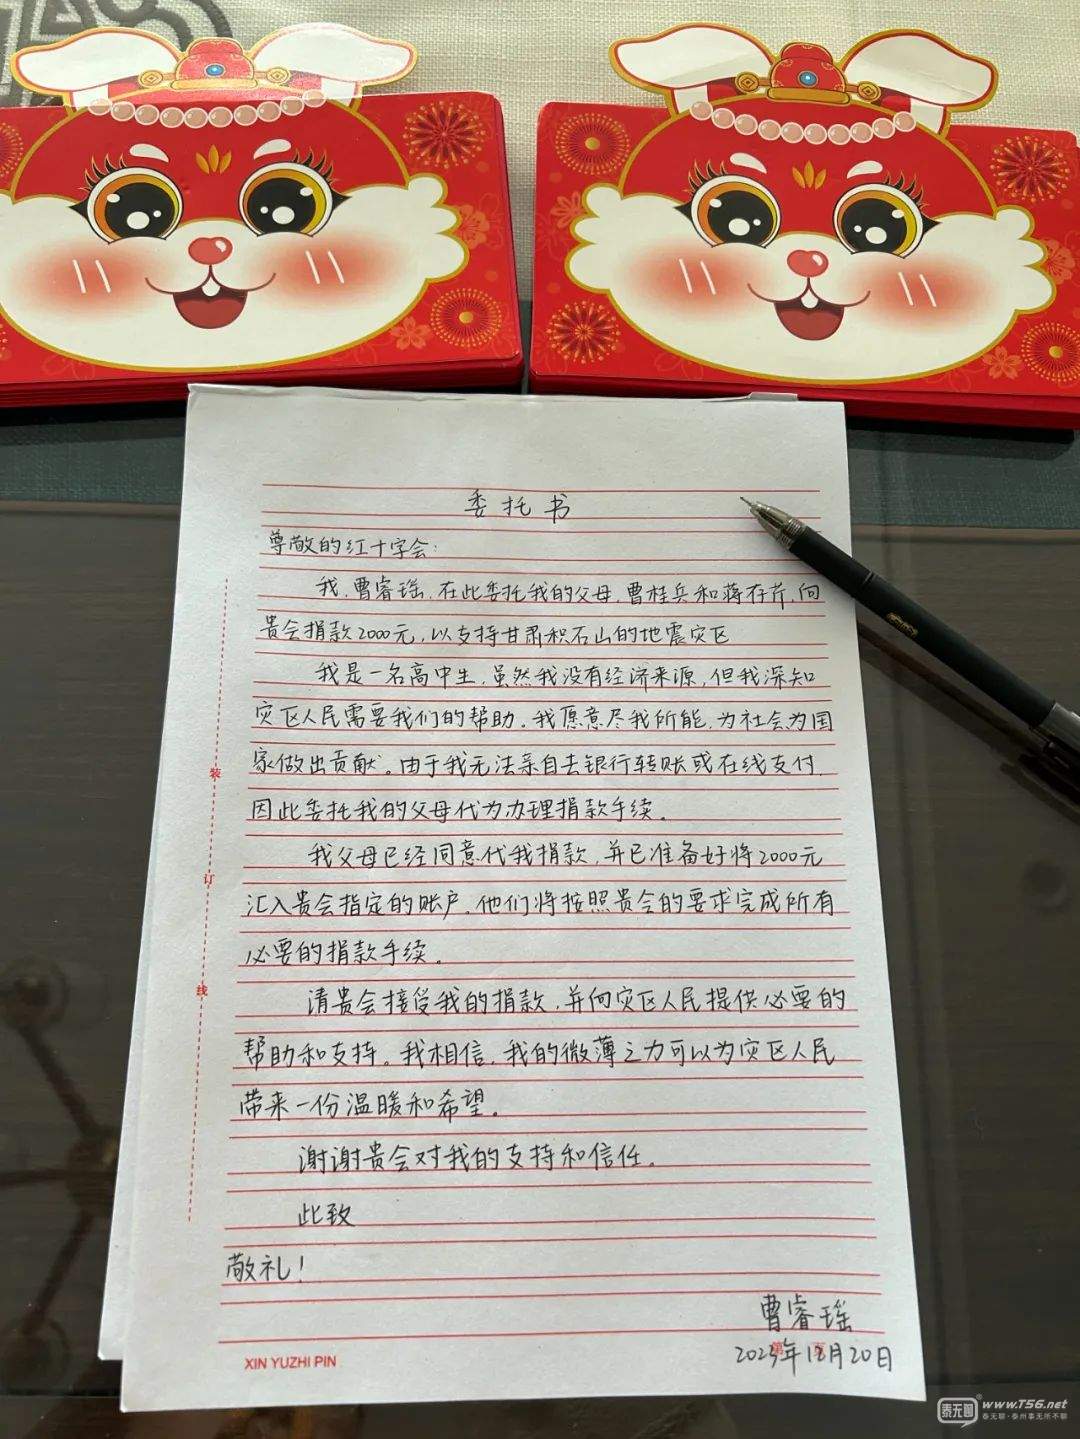 委托书
尊敬的红十字会:
我,曹睿瑶,在此委托我的父母,曹桂兵和蒋存芹,向
贵会捐款2000元,以支持甘肃积石山的地震灾区
我是一名高中生,虽然我没有经济来源,但我深知
灾区人民需要我们的帮助。我愿意尽我所能,为社会为国
家做出贡献。由于我无法亲自去银行转账或在线支付,
因此委托我的父母代为办理捐款手续。
我父母已经同意代我捐款,并已准备好将2000元
汇入贵会指定的账户。他们将按照贵会的要求完成所有
必要的捐款手续。
请贵会接受我的捐款,并向灾区人民提供必要的
帮助和支持。我相信,我的微薄之力可以为灾区人民
带来一份温暖和希望。
谢谢贵会对我的支持和信任。
此致
敬礼!
曹睿瑶
2023年12月20日
装
订
线
XIN YUZHI PIN
第 页
泰无聊
www.T56.net
泰无聊·泰州事无所不聊